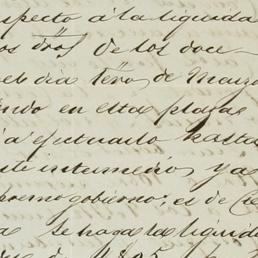 specto á la liquida
os dros de los doce
el dia 1ero de Marzo
endo en esta plazas
a efectuado hasta
este intermedio, ya
premo gobierno, es de Cre
se haga la liquid
de 1825